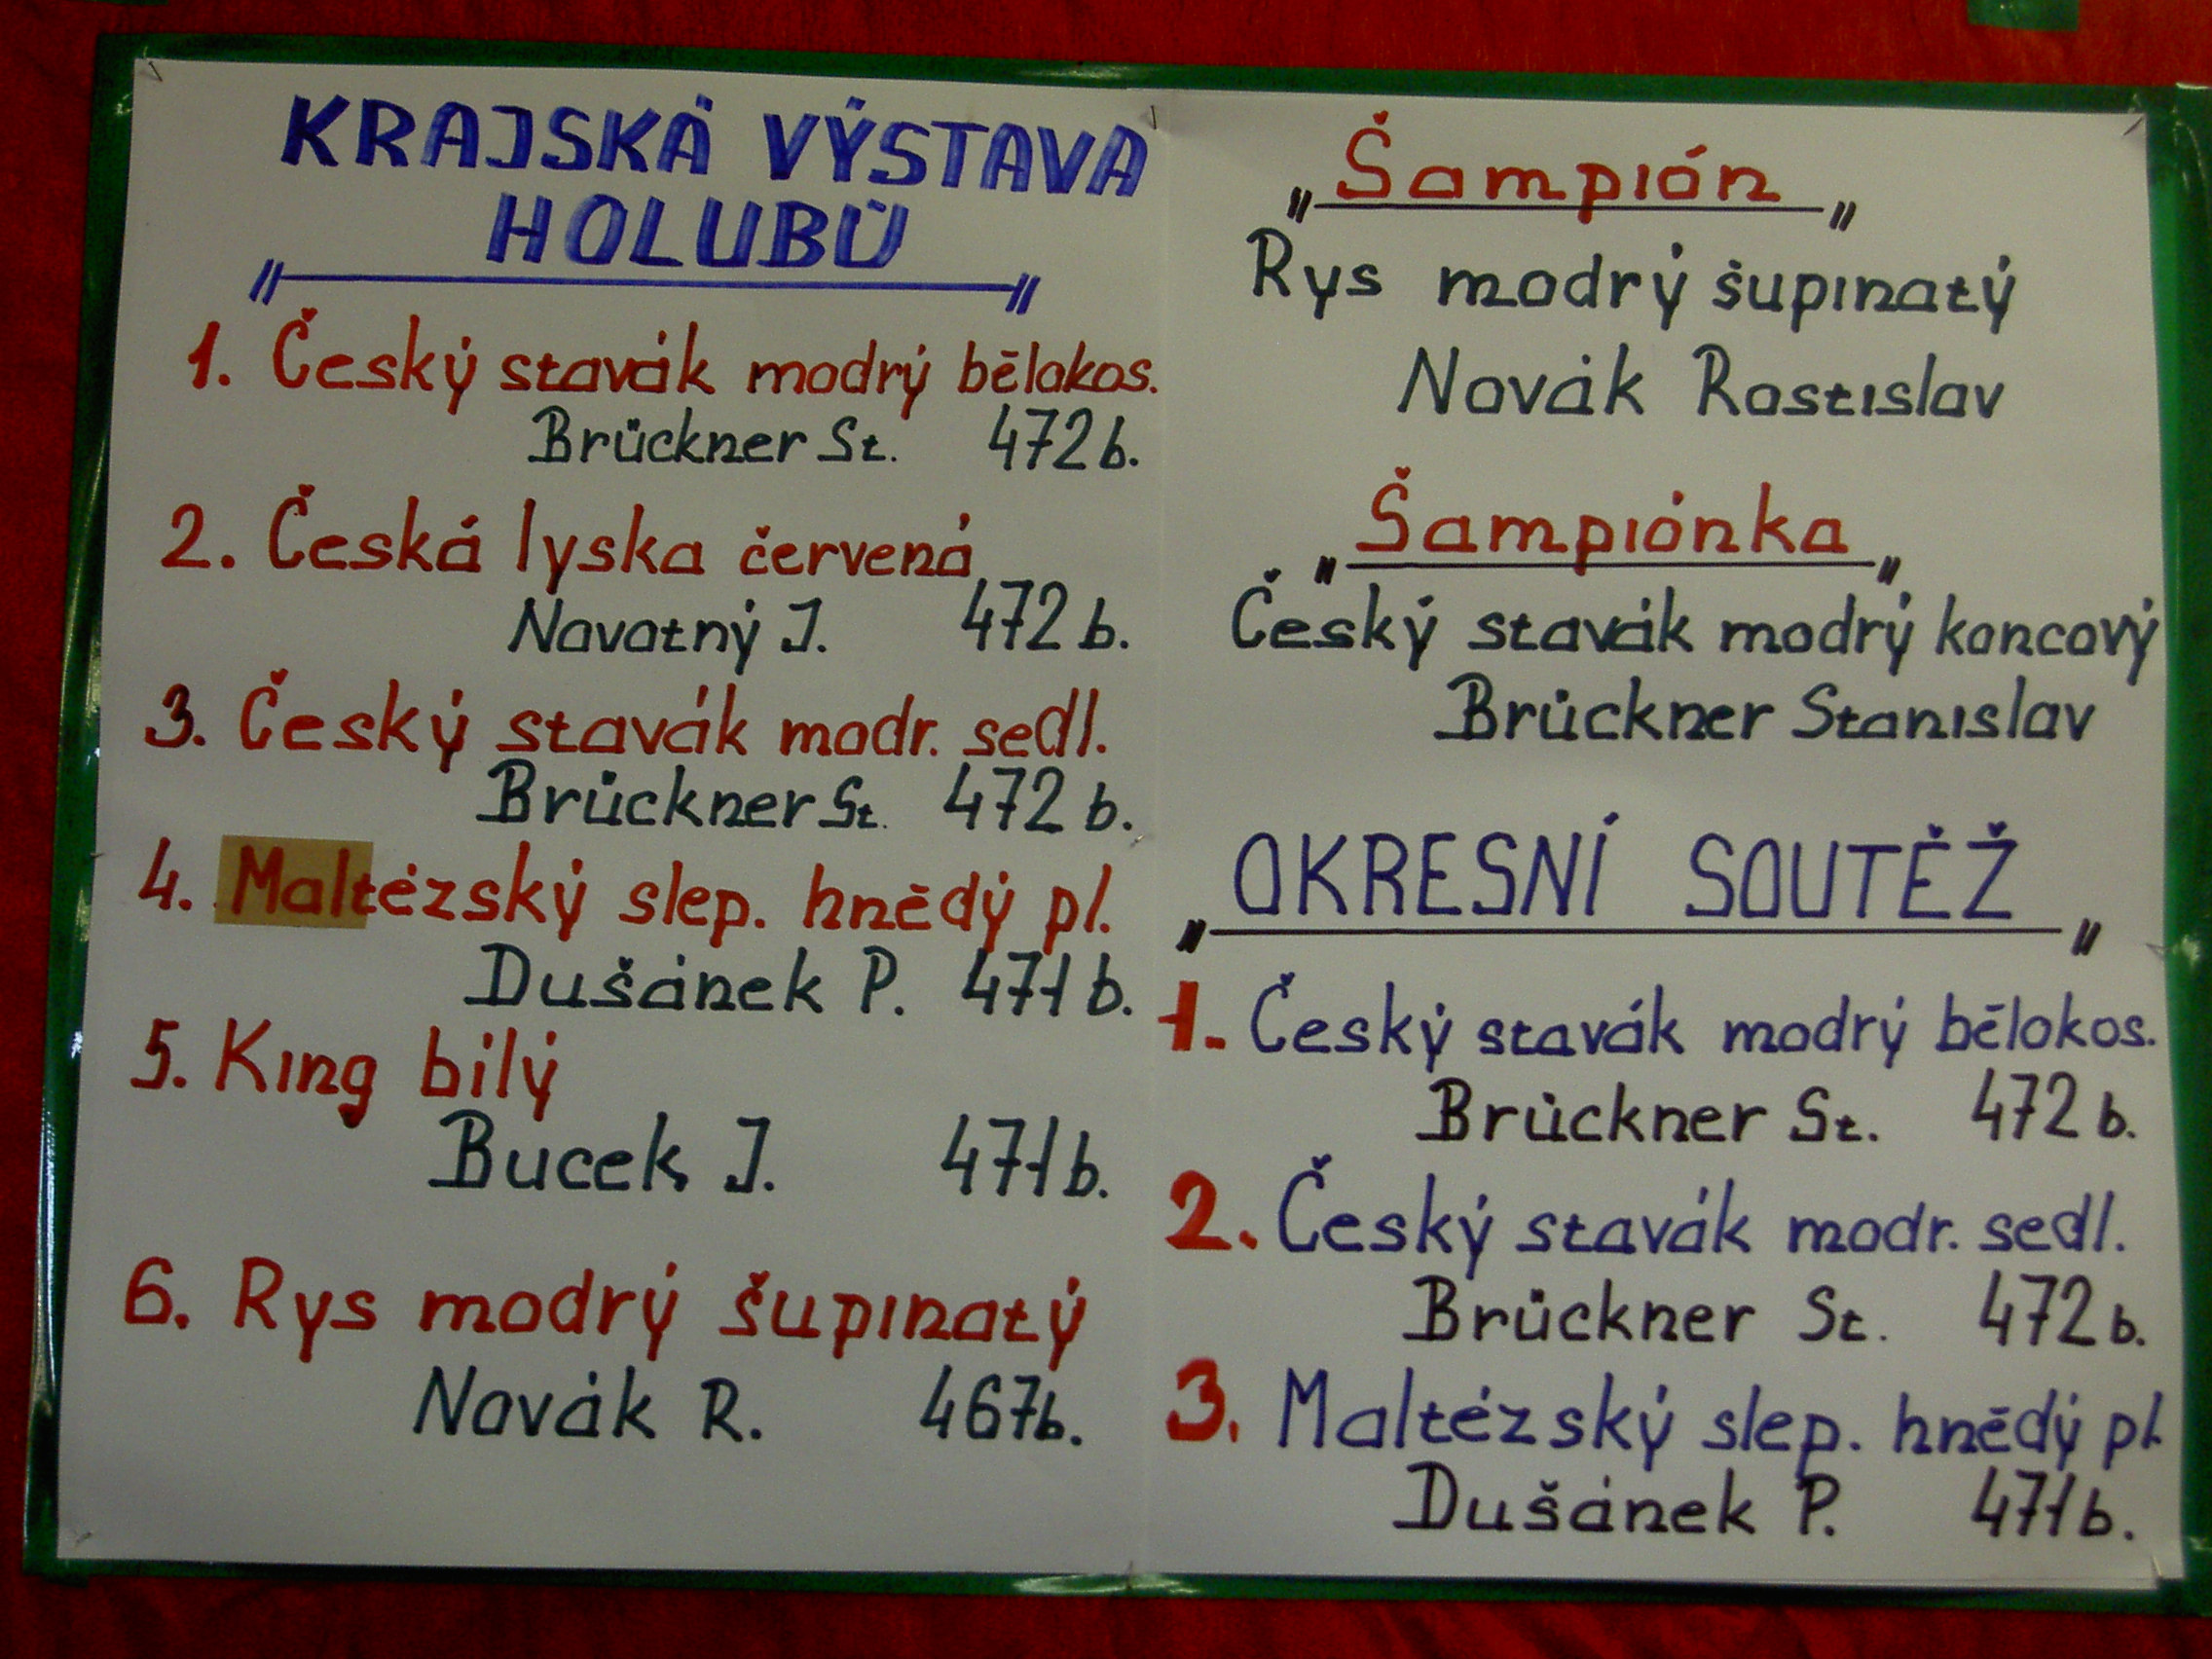 KRAJSKÁ VÝSTAVA
HOLUBŮ
1. Český stavák modrý bělokos.
Brückner St. 472 b.
2. Česká lyska červená
Novotný J. 472 b.
3. Český stavák modr. sedl.
Brückner St. 472 b.
4. Maltézský slep. hnědý pl.
Dušánek P. 471 b.
5. King bílý
Bucek J. 471 b.
6. Rys modrý šupinatý
Novák R. 467 b.
„Šampión„
Rys modrý šupinatý
Novák Rostislav
„Šampiónka„
Český stavák modrý koncový
Brückner Stanislav
„OKRESNÍ SOUTĚŽ„
1. Český stavák modrý bělokos.
Brückner St. 472 b.
2. Český stavák modr. sedl.
Brückner St. 472 b.
3. Maltézský slep. hnědý pl.
Dušánek P. 471 b.